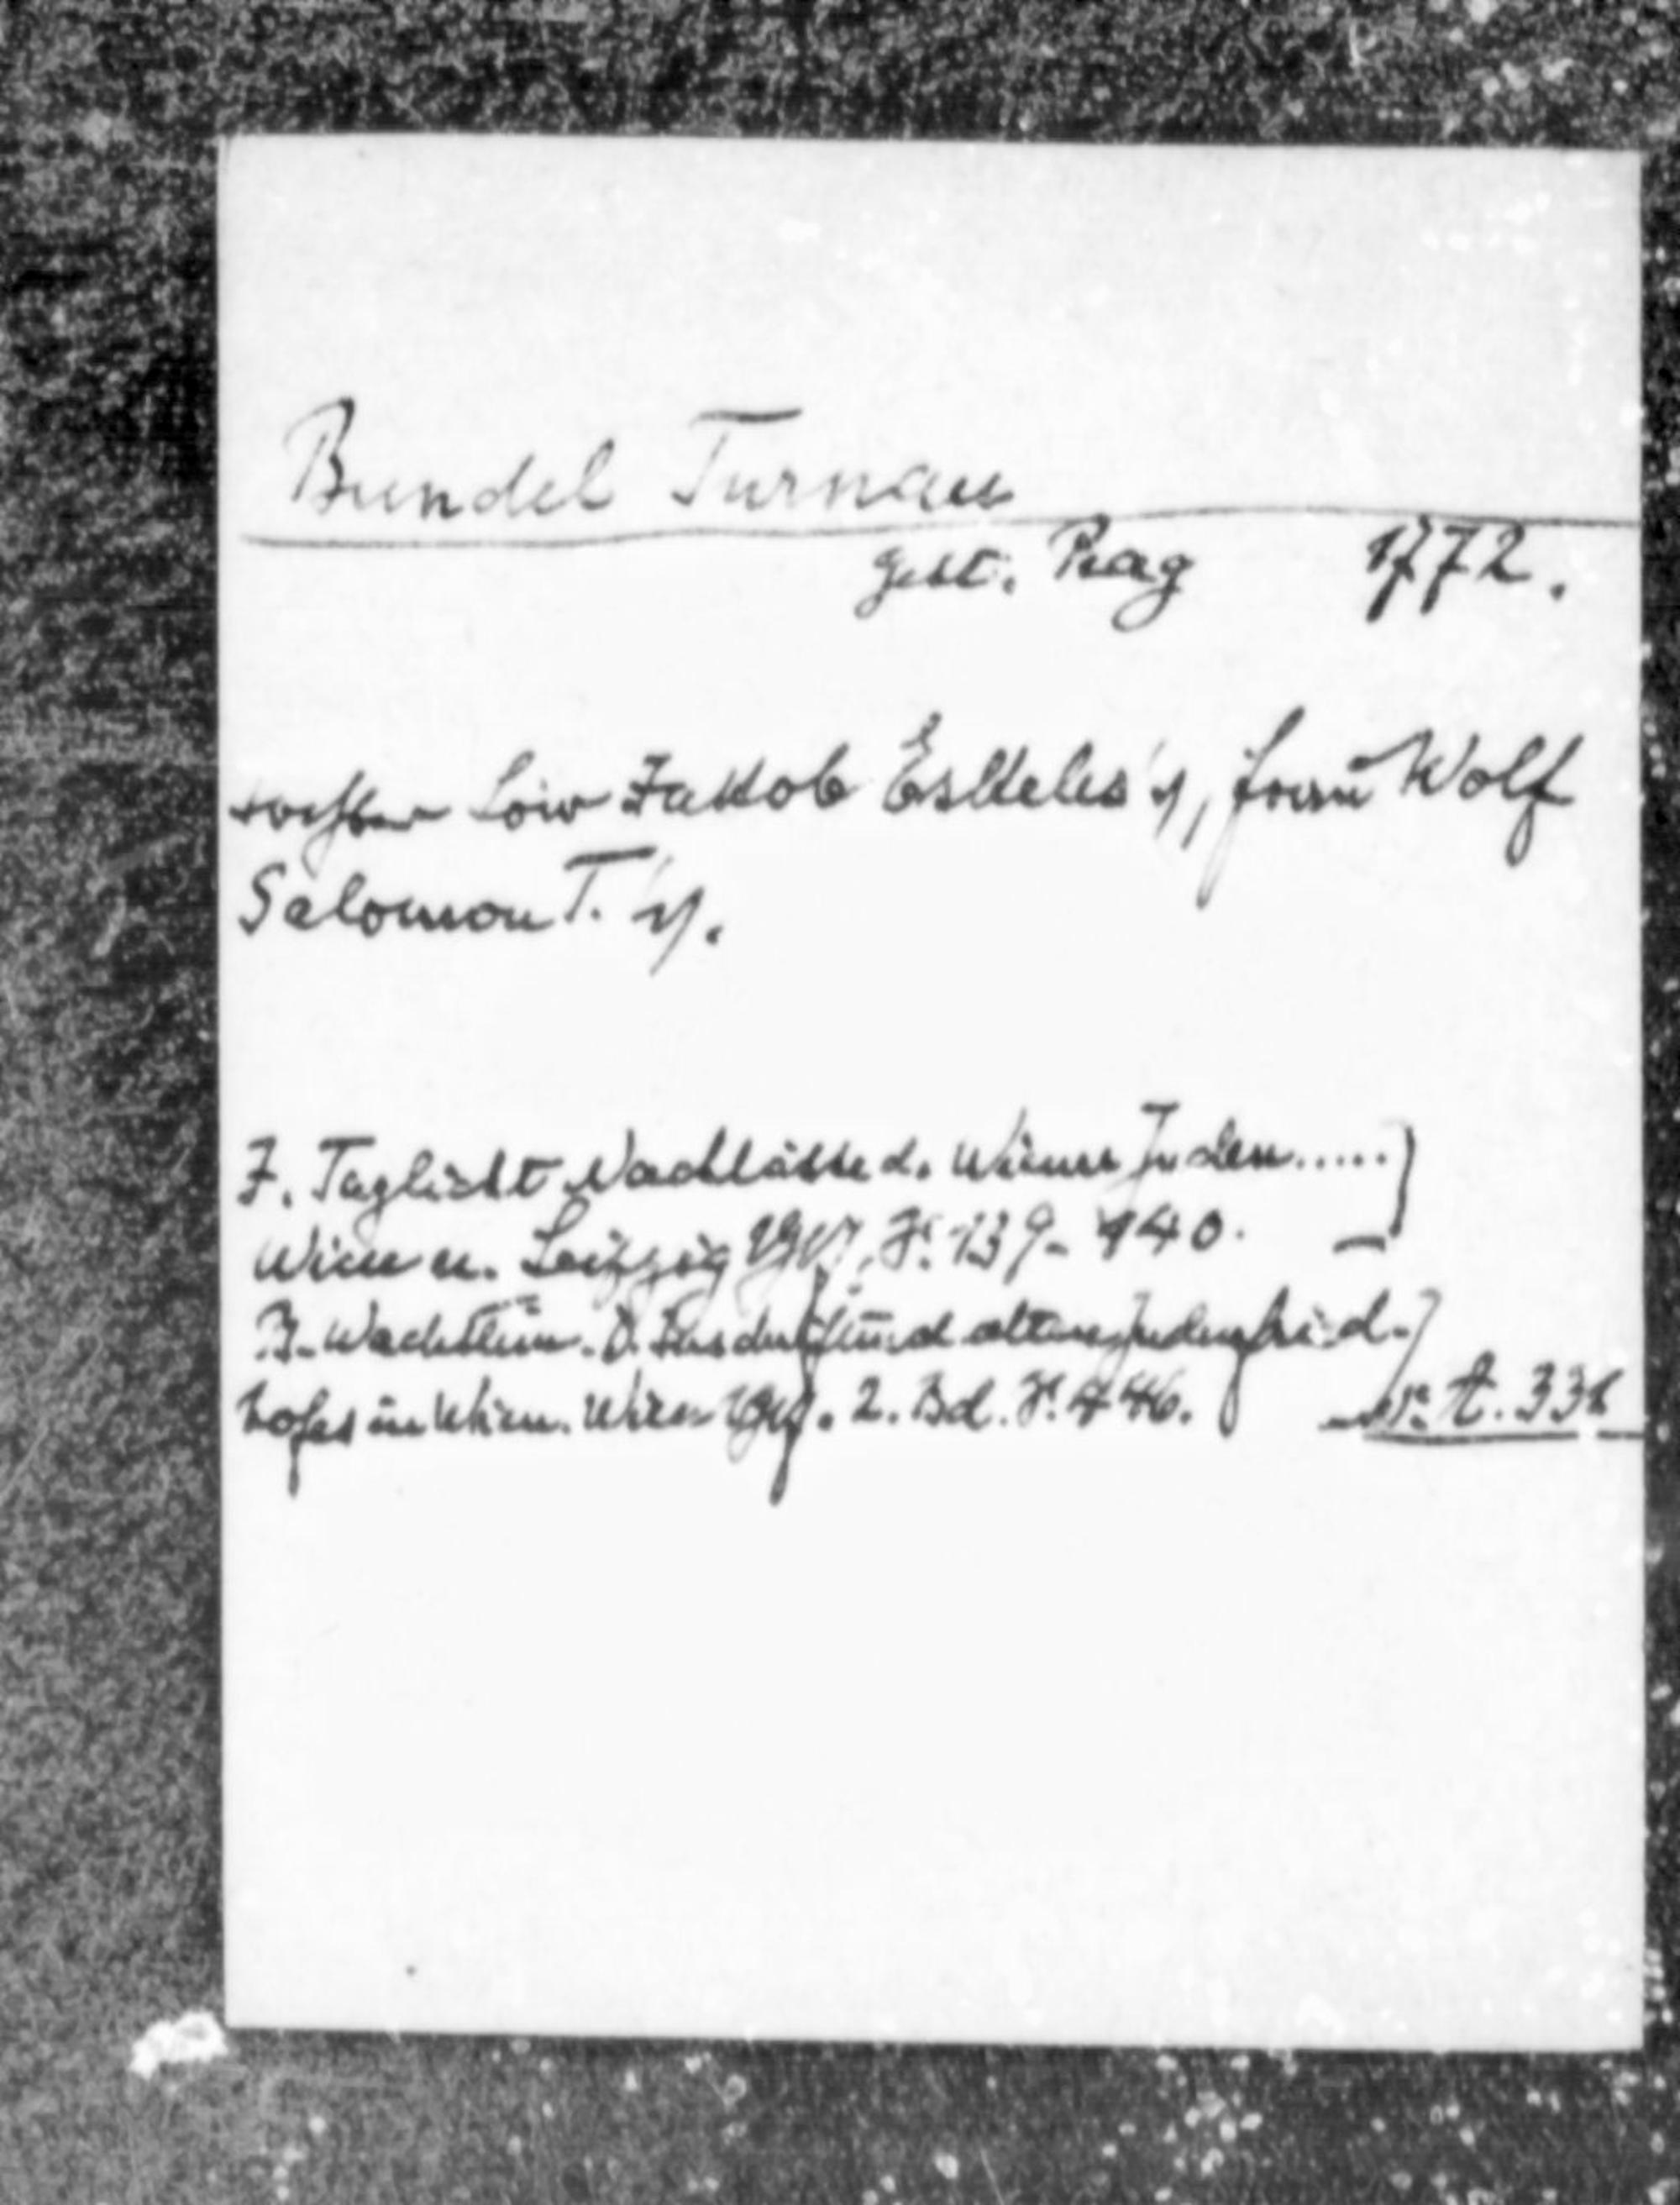 Bundel Turnau
gest. Prag 1772.
Tochter Löw Jakob Eskeles's, Frau Wolf
Salomon T.'s.
J. Taglicht Nachlässe d. Wiener Juden.....}
Wien u. Leipzig 1917, S. 139-140. —
B. Wachstein. D. Inschriften d alten Judenfried-}
hofes in Wien. Wien 1917. 2. Bd. S. 446. t. 331